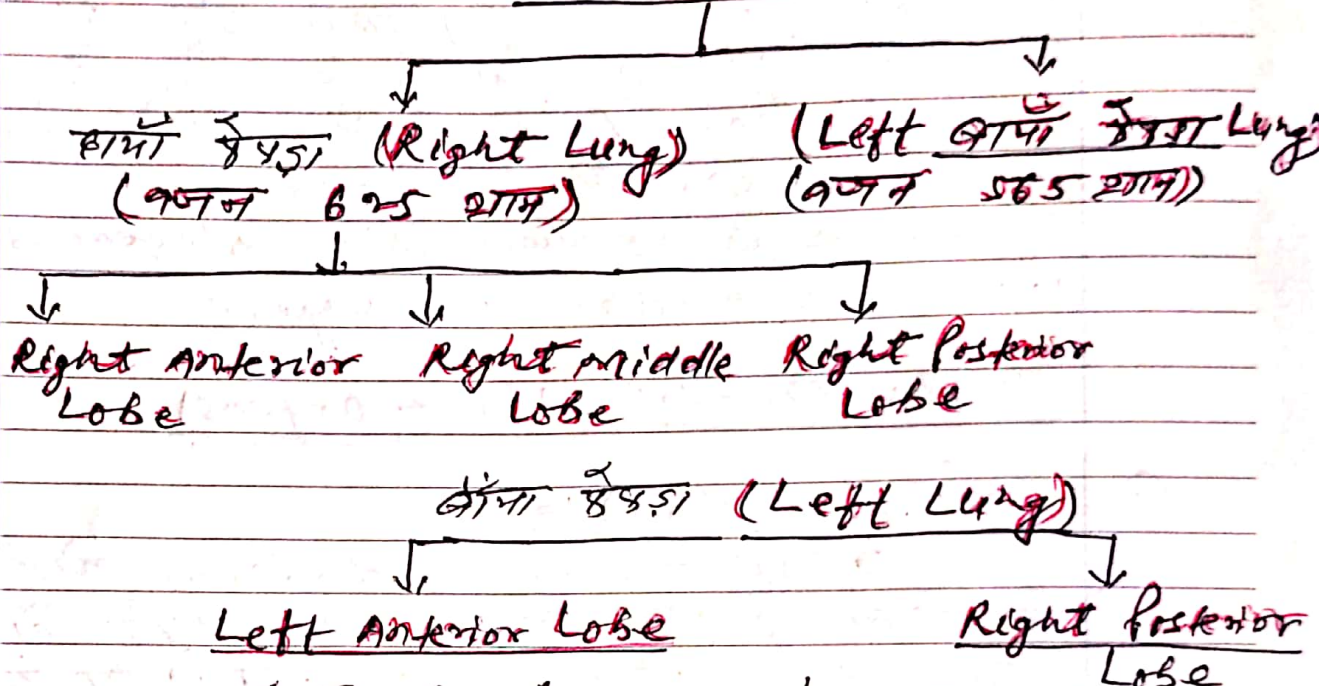 दायाँ फेफड़ा (Right Lung) (Left बायाँ फेफड़ा Lung)
(वजन 625 ग्राम) (वजन 565 ग्राम)
Right Anterior Lobe Right middle Lobe Right Posterior Lobe
बांया फेफड़ा (Left Lung)
Left Anterior Lobe Right Posterior Lobe